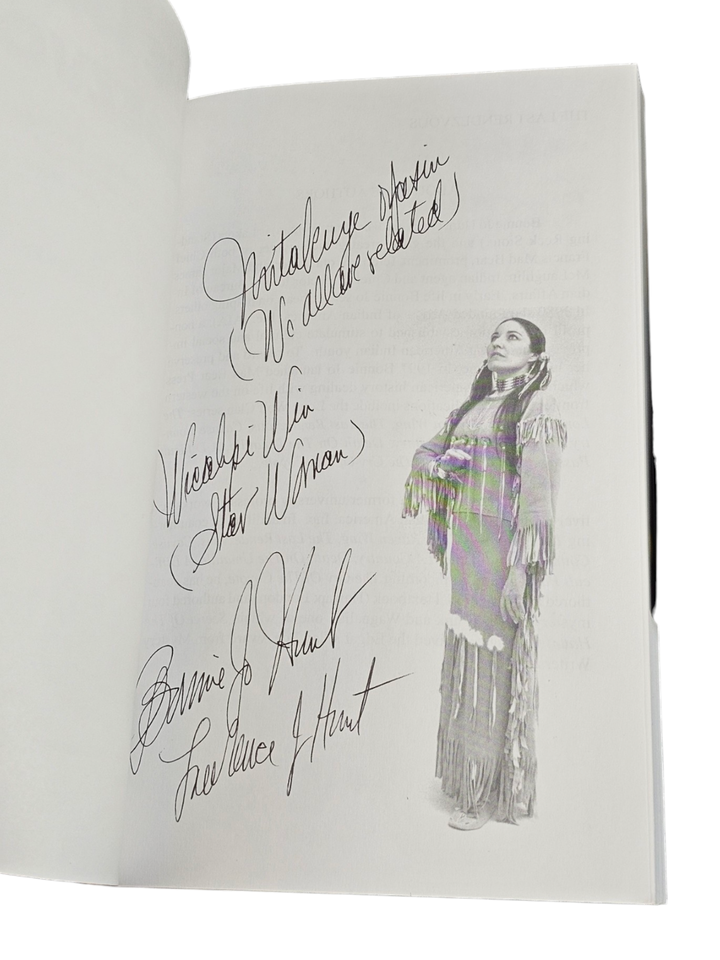 Mitakuye Oyasin
(We all are related)
Wicahpi Win
(Star Woman)
Bonnie Jo Hunt
Lawrence J Hunt